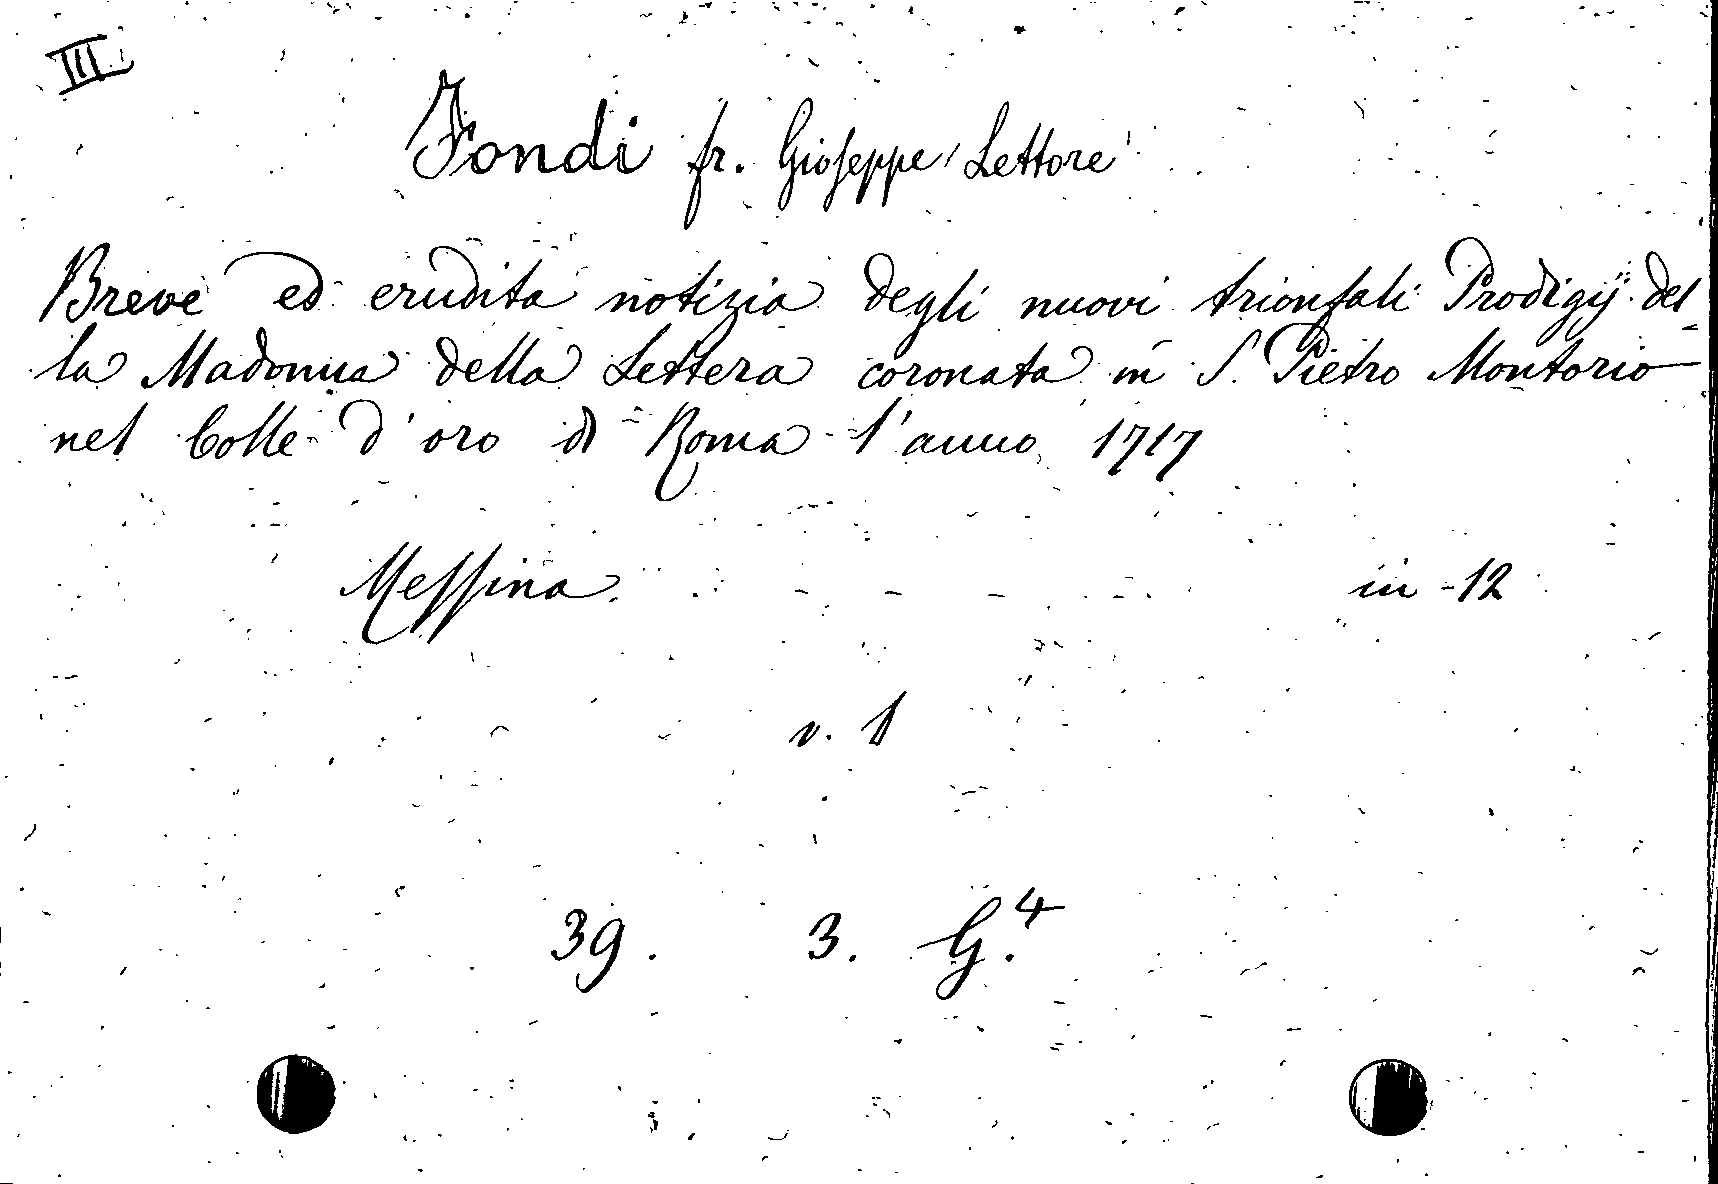 III
Fondi fr. Gioseppe, Lettore
Breve ed erudita notizia degli nuovi trionfali Prodigij del-
la Madonna della Lettera coronata in S. Pietro Montorio
nel Colle d'oro di Roma l'anno 1717
Messina. - - - - in-12
v. 1
39. 3. G.4